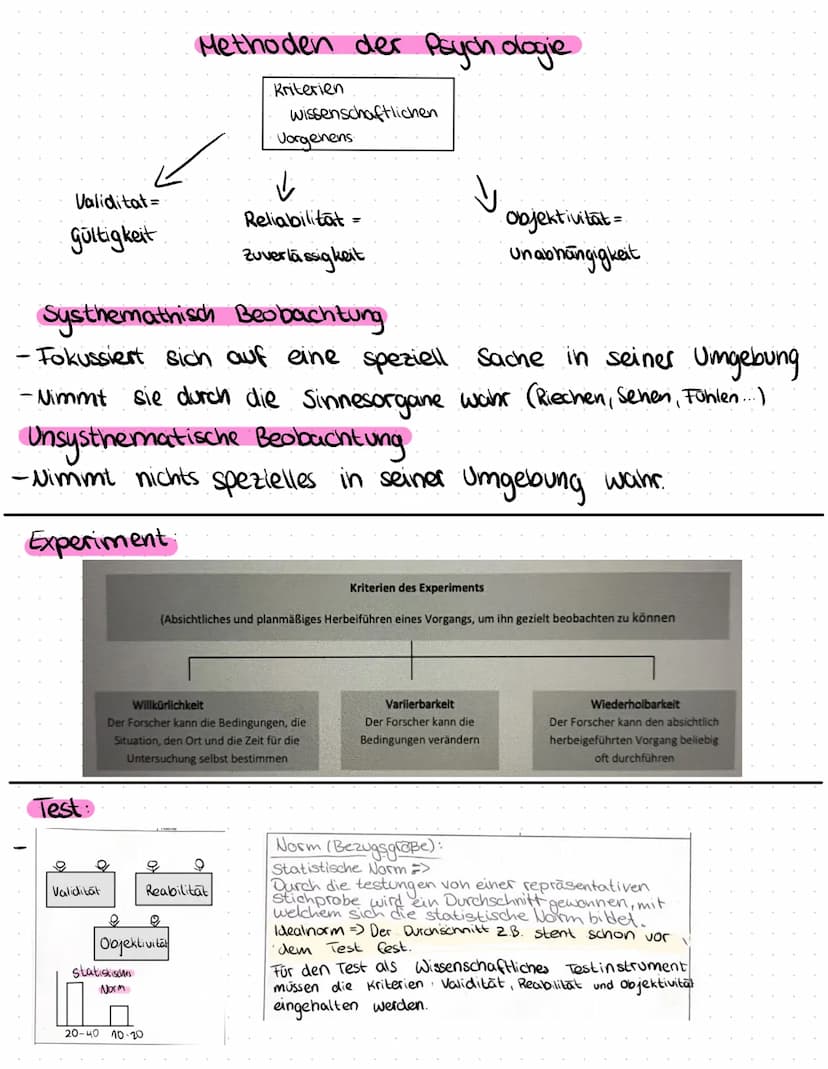 Methoden der Psychologie
Kriterien
wissenschaftlichen
Vorgehens
Validität=
Gültigkeit
Reliabilität =
Zuverlässigkeit
Objektivität=
Unabhängigkeit
Systhemathisch Beobachtung
- Fokussiert sich auf eine speziell Sache in seiner Umgebung
- Nimmt sie durch die Sinnesorgane wahr (Riechen, Sehen, Fühlen...)
Unsysthematische Beobachtung
- Nimmt nichts spezielles in seiner Umgebung wahr.
Experiment:
Kriterien des Experiments
(Absichtliches und planmäßiges Herbeiführen eines Vorgangs, um ihn gezielt beobachten zu können
Willkürlichkeit
Der Forscher kann die Bedingungen, die
Situation, den Ort und die Zeit für die
Untersuchung selbst bestimmen
Variierbarkeit
Der Forscher kann die
Bedingungen verändern
Wiederholbarkeit
Der Forscher kann den absichtlich
herbeigeführten Vorgang beliebig
oft durchführen
Test:
-
Validität
Reabilität
Objektivität
Statistischen
Norm
20-40 10-20
Norm (Bezugsgröße):
Statistische Norm =>
Durch die testungen von einer repräsentativen
Stichprobe wird ein Durchschnitt gewonnen, mit
welchem sich die statistische Norm bildet.
Idealnorm => Der Durchschnitt z.B. steht schon vor
dem Test fest.
Für den Test als Wissenschaftliches Testinstrument
müssen die Kriterien: Validität, Reabilität und Objektivität
eingehalten werden.